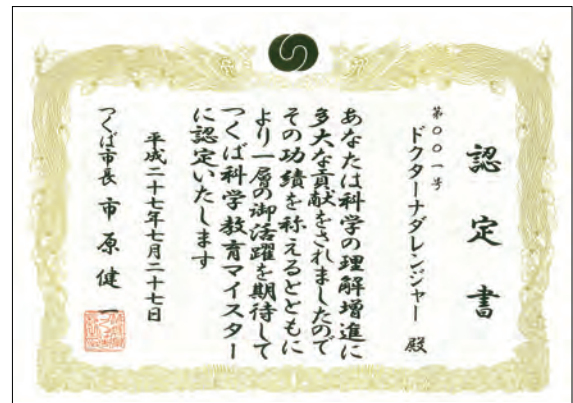 認定書
第〇〇一号
ドクターナダレンジャー 殿
あなたは科学の理解増進に
多大な貢献をされましたので
その功績を称えるとともに
より一層の御活躍を期待して
つくば科学教育マイスター
に認定いたします
平成二十七年七月二十七日
つくば市長 市原健一